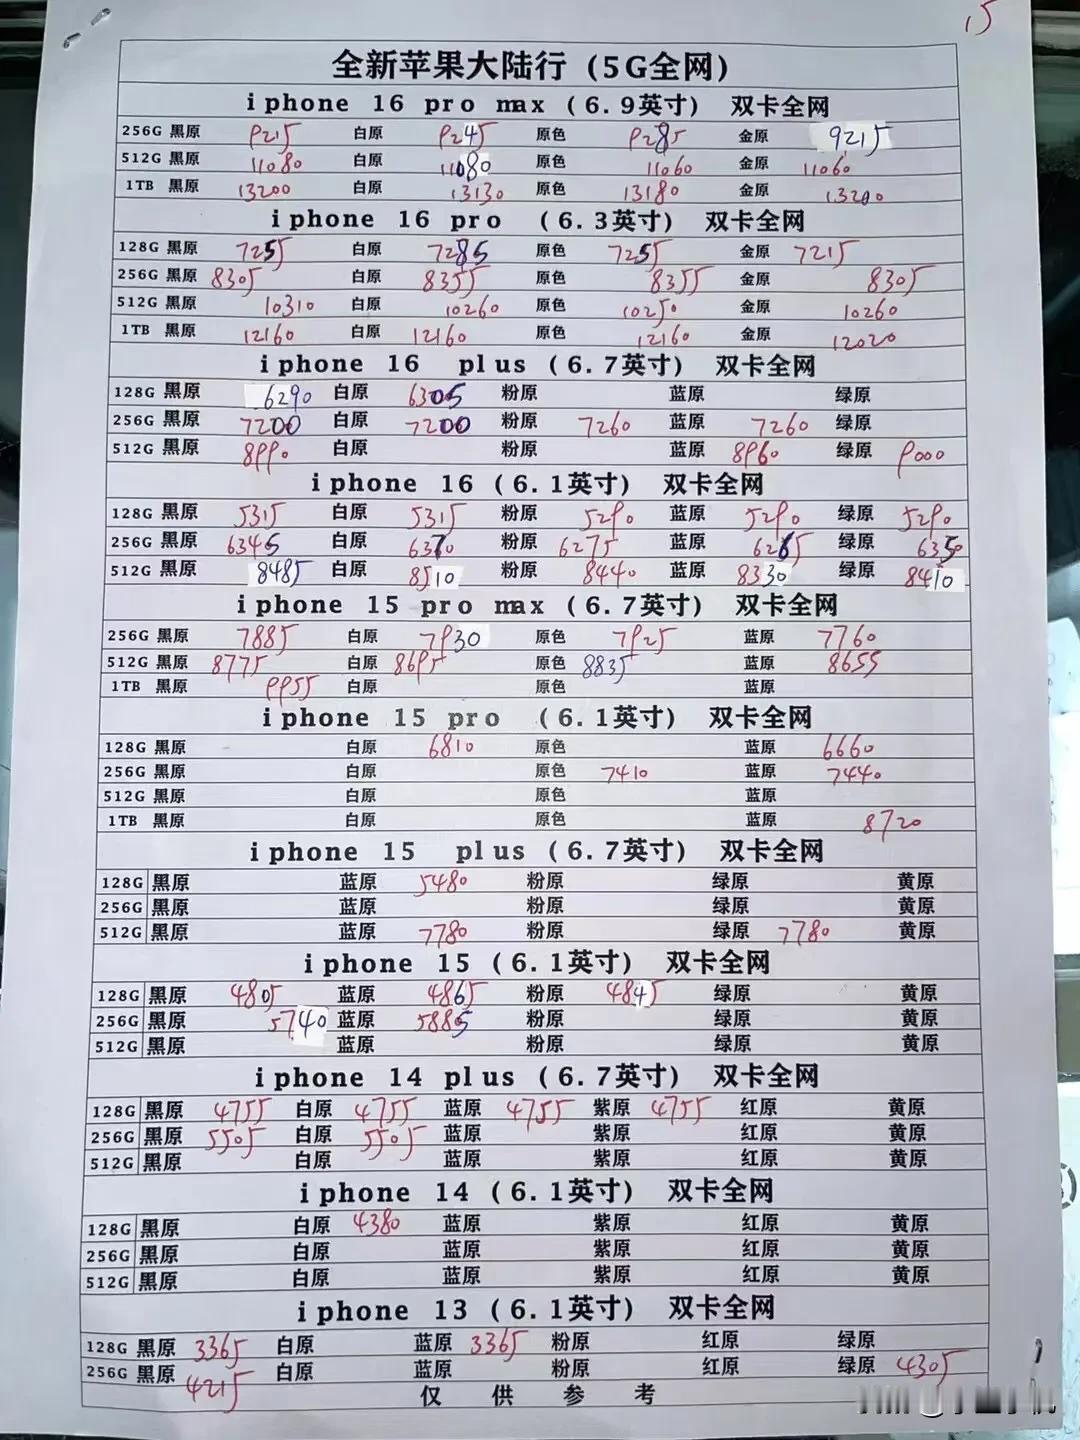 15
全新苹果大陆行（5G全网）
iphone 16 pro max（6.9英寸） 双卡全网
256G 黑原 9215 白原 9245 原色 9285 金原 9215
512G 黑原 11080 白原 11080 原色 11060 金原 11060
1TB 黑原 13200 白原 13130 原色 13180 金原 13200
iphone 16 pro （6.3英寸） 双卡全网
128G 黑原 7255 白原 7285 原色 7255 金原 7215
256G 黑原 8305 白原 8355 原色 8355 金原 8305
512G 黑原 10310 白原 10260 原色 10250 金原 10260
1TB 黑原 12160 白原 12160 原色 12160 金原 12020
iphone 16 plus（6.7英寸） 双卡全网
128G 黑原 6290 白原 6305 粉原 蓝原 绿原
256G 黑原 7200 白原 7200 粉原 7260 蓝原 7260 绿原
512G 黑原 8990 白原 粉原 蓝原 8960 绿原 9000
iphone 16（6.1英寸） 双卡全网
128G 黑原 5315 白原 5315 粉原 5290 蓝原 5290 绿原 5290
256G 黑原 6345 白原 6370 粉原 6275 蓝原 6265 绿原 6350
512G 黑原 8485 白原 8510 粉原 8440 蓝原 8330 绿原 8410
iphone 15 pro max（6.7英寸） 双卡全网
256G 黑原 7885 白原 7930 原色 7925 蓝原 7760
512G 黑原 8775 白原 8695 原色 8835 蓝原 8655
1TB 黑原 9955 白原 原色 蓝原
iphone 15 pro （6.1英寸） 双卡全网
128G 黑原 白原 6810 原色 蓝原 6660
256G 黑原 白原 原色 7410 蓝原 7440
512G 黑原 白原 原色 蓝原
1TB 黑原 白原 原色 蓝原 8720
iphone 15 plus（6.7英寸） 双卡全网
128G 黑原 蓝原 5480 粉原 绿原 黄原
256G 黑原 蓝原 粉原 绿原 黄原
512G 黑原 蓝原 7780 粉原 绿原 7780 黄原
iphone 15（6.1英寸） 双卡全网
128G 黑原 4805 蓝原 4865 粉原 4845 绿原 黄原
256G 黑原 5740 蓝原 5885 粉原 绿原 黄原
512G 黑原 蓝原 粉原 绿原 黄原
iphone 14 plus（6.7英寸） 双卡全网
128G 黑原 4755 白原 4755 蓝原 4755 紫原 4755 红原 黄原
256G 黑原 5505 白原 5505 蓝原 紫原 红原 黄原
512G 黑原 白原 蓝原 紫原 红原 黄原
iphone 14（6.1英寸） 双卡全网
128G 黑原 白原 4380 蓝原 紫原 红原 黄原
256G 黑原 白原 蓝原 紫原 红原 黄原
512G 黑原 白原 蓝原 紫原 红原 黄原
iphone 13（6.1英寸） 双卡全网
128G 黑原 3365 白原 蓝原 3365 粉原 红原 绿原
256G 黑原 4215 白原 蓝原 粉原 红原 绿原 4305
仅供参考